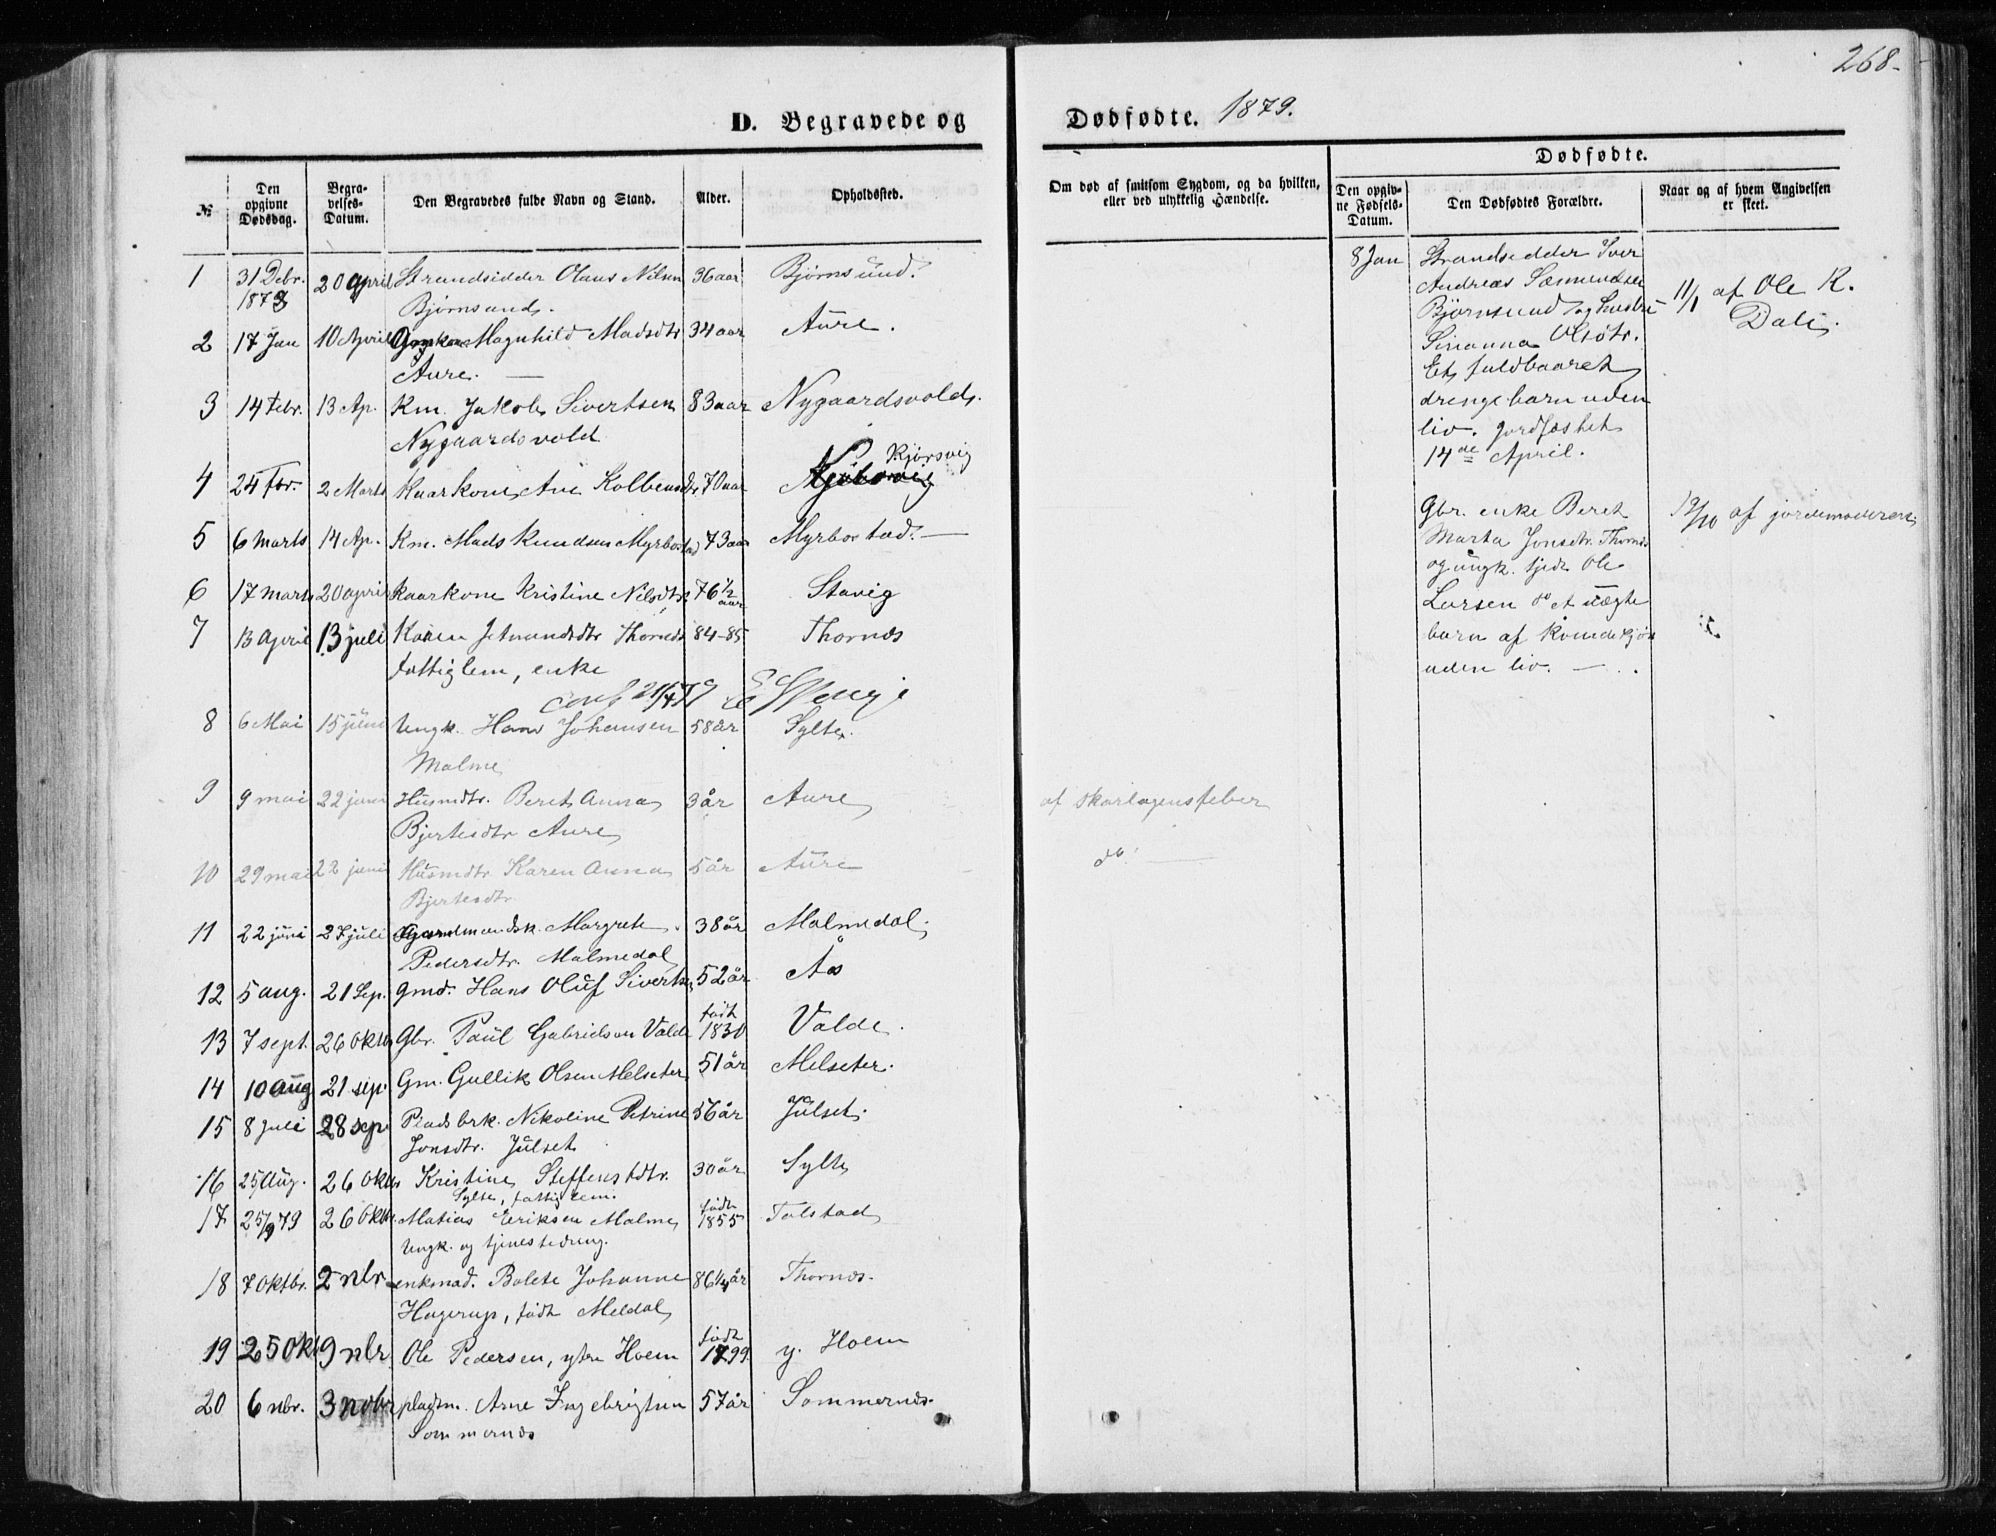 268.
D. Begravede og Dødfødte. 1879.
№
Den opgivne Dødsdag.
Begravelses-Datum.
Den Begravedes fulde Navn og Stand.
Alder.
Opholdssted.
Om død af smitsom Sygdom, og da hvilken, eller ved ulykkelig Hændelse.
Dødfødte.
Den opgivne Fødsels-Datum.
Den Dødfødtes Forældre.
Naar og af hvem Angivelsen er skeet.
1 31 Debr. 1878 20 april Strandsidder Olaus Nilsen 36 aar Bjørnsund.
Bjørnsund.
2 17 Jan 10 April Magnhild Madsdtr 34 aar Aure.
Aure. —
3 14 Febr. 13 Ap. Km. Jakob Sivertsen 83 aar Nygaardsvold.
Nygaardsvold
4 24 Febr. 2 Marts Kaarkone Ane Kolbensdtr 70 aar Kjørsvig
5 6 Marts 14 Ap. Km. Mads Knudsen Myrbostad 73 aar Myrbostad. —
6 17 marts 20 april Kaarkone Kristine Nilsdtr 76 1/2 aar Stavig
7 13 April 13 juli Karen Jetmundsdtr Thornes 84-85 Thornes
fattiglem, enke
conf 21/4 79
8 6 Mai 15 juni Ungk. Hans Johansen 58 år Sylte.
Malme
9 9 mai 22 juni Husmdtr. Beret Anna 3 år Aure af skarlagensfeber
Bjertesdtr Aure
10 29 mai 22 juni Husmdtr Karen Anna 5 år Aure do. —
Bjertesdtr
11 22 juni 27 juli Gaardmandsk. Margrete 38 år Malmedal.
Pedersdtr. Malmedal
12 5 aug. 21 Sep. gmd. Hans Oluf Sivertsen 52 år Ås
13 7 sept. 26 oktbr Gbr. Paul Gabrielsen Valde født 1830 Valde.
14 10 aug 21 sep. Gm. Gullik Olsen Melseter 51 år Melseter.
15 8 juli 28 sep Pladsbrk. Nikoline Petrine 56 år Julset.
Jonsdtr. Julset
16 25 Aug. 26 oktbr Kristine Steffensdtr. 30 år Sylte
Sylte, fattiglem.
17 25/9 79 26 Oktbr. Matias Eeriksen Malme født 1855 Talstad
Ungk. og tjenestedreng.
18 7 Oktbr. 2 nbr. enkmad. Bolete Johanne 86 1/4 år Thornes.
Hagerup, født Meldal
19 25 Okt 9 nbr Ole Pedersen, ytre Hoem født 1799. y. Hoem
20 6 nbr. 3 nobr pladsm. Arne Ingebrigtsen 57 år Sommernes.
Sommernes
8 Jan Strandsidder Iver
Andreas Sæmundsen
Bjørnsund og hustru
Sinanna Olsdtr.
Et fuldbaaret
drengebarn uden
liv. Jordfæstet
14de April.
11/1 af Ole K.
Dali.
Gbr. enke Beret
Marta Jonsdtr. Thornes
og ungk. tjedr. Ole
Larsen do et uægte
barn af kvindekjøn
uden liv. —
12/10 af jordemoderen.